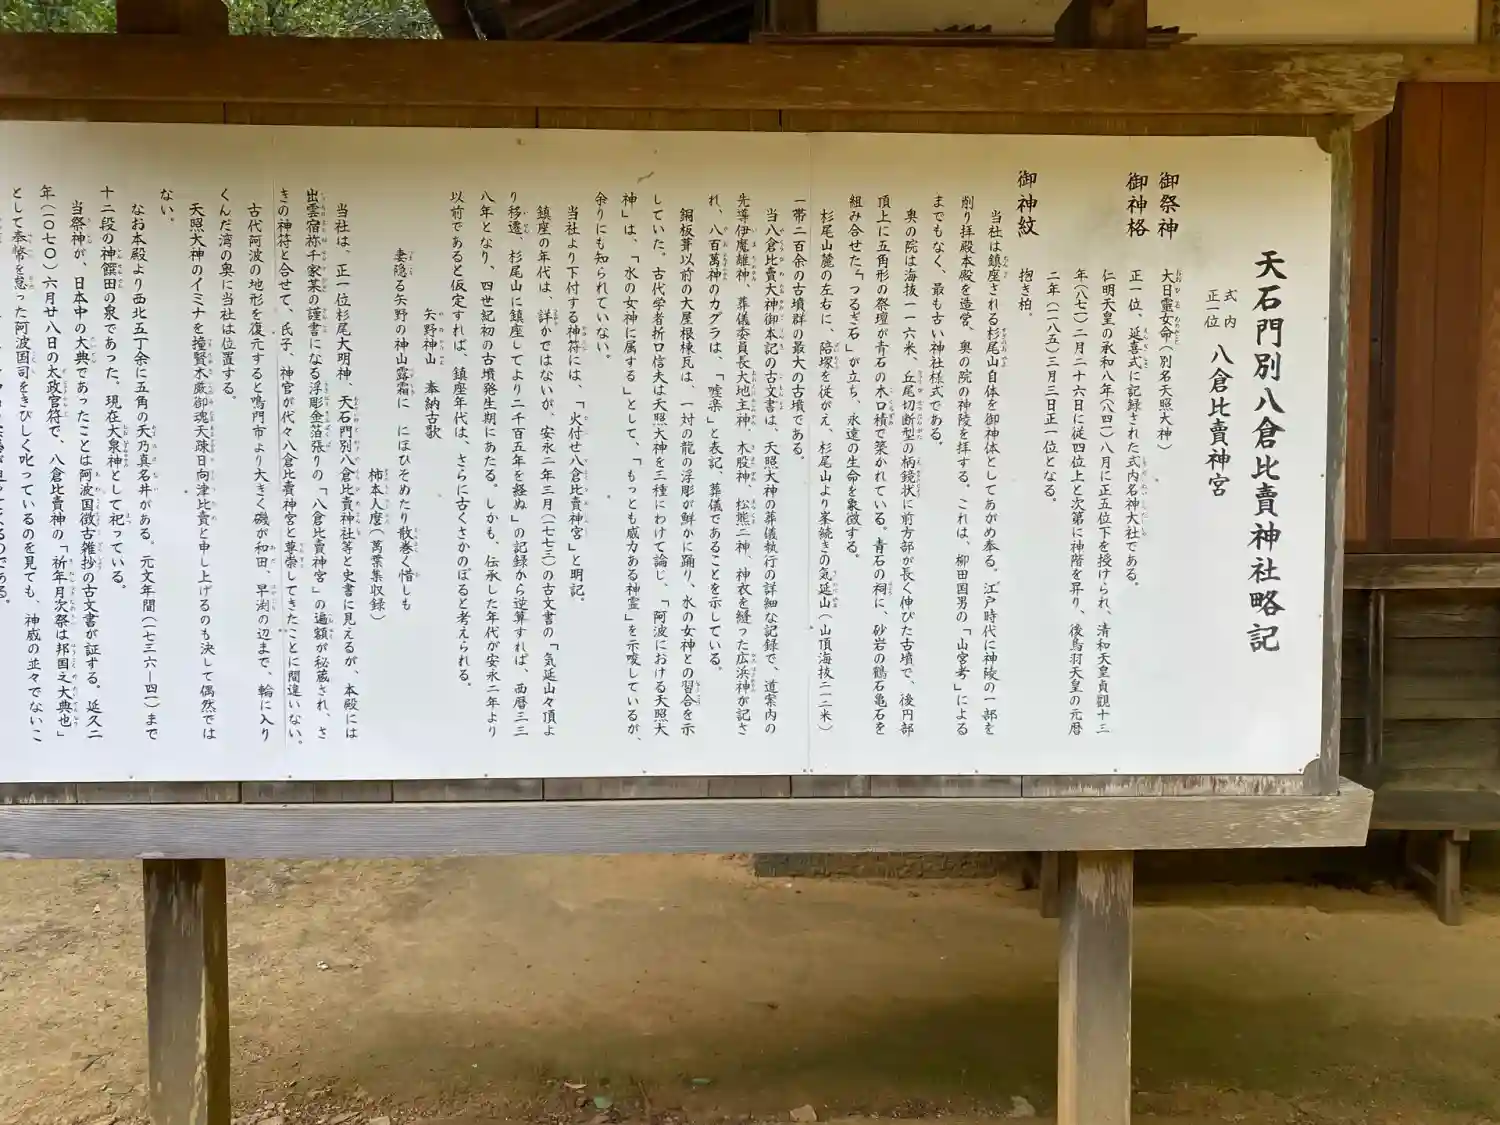 天石門別八倉比賣神社略記
式内
正一位 八倉比賣神宮
御祭神
大日靈女命(別名天照大神)
御神格
正一位、延喜式に記録された式内名神大社である。
仁明天皇の承和八年(八四一)八月に正五位下を授けられ、清和天皇貞観十三
年(八七一)二月二十六日に従四位上と次第に神階を昇り、後鳥羽天皇の元暦
二年(一一八五)三月三日正一位となる。
御神紋
抱き柏、
当社は鎮座される杉尾山自体を御神体としてあがめ奉る。江戸時代に神陵の一部を
削り拝殿本殿を造営、奥の院の神陵を拝する。これは、柳田国男の「山宮考」による
までもなく、最も古い神社様式である。
奥の院は海抜一一六米、丘尾切断型の柄鏡状に前方部が長く伸びた古墳で、後円部
頂上に五角形の祭壇が青石の木口積で築かれている。青石の祠に、砂岩の鶴石亀石を
組み合せた「つるぎ石」が立ち、永遠の生命を象徴する。
杉尾山麓の左右に、陪塚を従がえ、杉尾山より峯続きの気延山(山頂海抜二一二米)
一帯二百余の古墳群の最大の古墳である。
当八倉比賣大神御本記の古文書は、天照大神の葬儀執行の詳細な記録で、道案内の
先導伊魔離神、葬儀委員長大地主神、木股神、松熊二神、神衣を縫った広浜神が記さ
れ、八百萬神のカグラは、「嘘楽」と表記、葬儀であることを示している。
銅板葺以前の大屋根棟瓦は、一対の龍の浮彫が鮮かに踊り、水の女神との習合を示
していた。古代学者折口信夫は天照大神を三種にわけて論じ、「阿波における天照大
神」は、「水の女神に属する」として、「もっとも威力ある神霊」を示唆しているが、
余りにも知られていない。
当社より下付する神符には、「火付せ八倉比賣神宮」と明記。
鎮座の年代は、詳かではないが、安永二年三月(一七七三)の古文書の「気延山々頂よ
り移遷、杉尾山に鎮座してより二千百五年を経ぬ」の記録から逆算すれば、西暦三三
八年となり、四世紀初の古墳発生期にあたる。しかも、伝承した年代が安永二年より
以前であると仮定すれば、鎮座年代は、さらに古くさかのぼると考えられる。
矢野神山 奉納古歌
妻隠る矢野の神山露霜に にほひそめたり散巻く惜しも
柿本人麿(萬葉集収録)
当社は、正一位杉尾大明神、天石門別八倉比賣神社等と史書に見えるが、本殿には
出雲宿祢千家某の謹書になる浮彫金箔張りの「八倉比賣神宮」の遍額が秘蔵され、さ
きの神符と合せて、氏子、神官が代々八倉比賣神宮と尊崇してきたことに間違いない。
古代阿波の地形を復元すると鳴門市より大きく磯が和田、早渕の辺まで、輪に入り
くんだ湾の奥に当社は位置する。
天照大神のイミナを撞賢木厳御魂天疎日向津比賣と申し上げるのも決して偶然では
ない。
なお本殿より西北五丁余に五角の天乃真名井がある。元文年間(一七三六ー四一)まで
十二段の神饌田の泉であった。現在大泉神として祀っている。
当祭神が、日本中の大典であったことは阿波国徴古雑抄の古文書が証する。延久二
年(一〇七〇)六月廿八日の太政官符で、八倉比賣神の「祈年月次祭は邦国之大典也」
として奉幣を怠った阿波国司をきびしく叱っているのを見ても、神威の並々でないこ